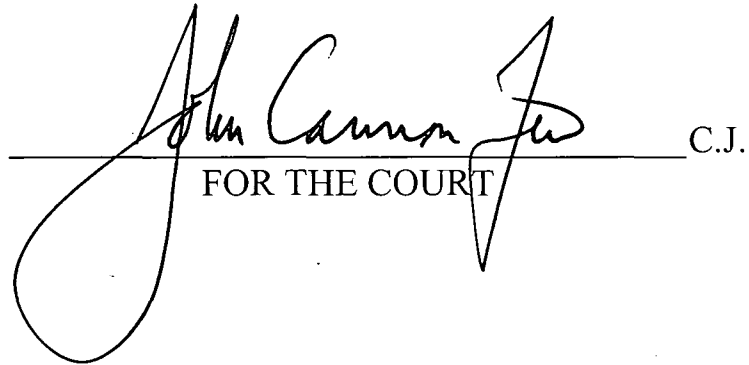 John Cannon Few C.J.
FOR THE COURT